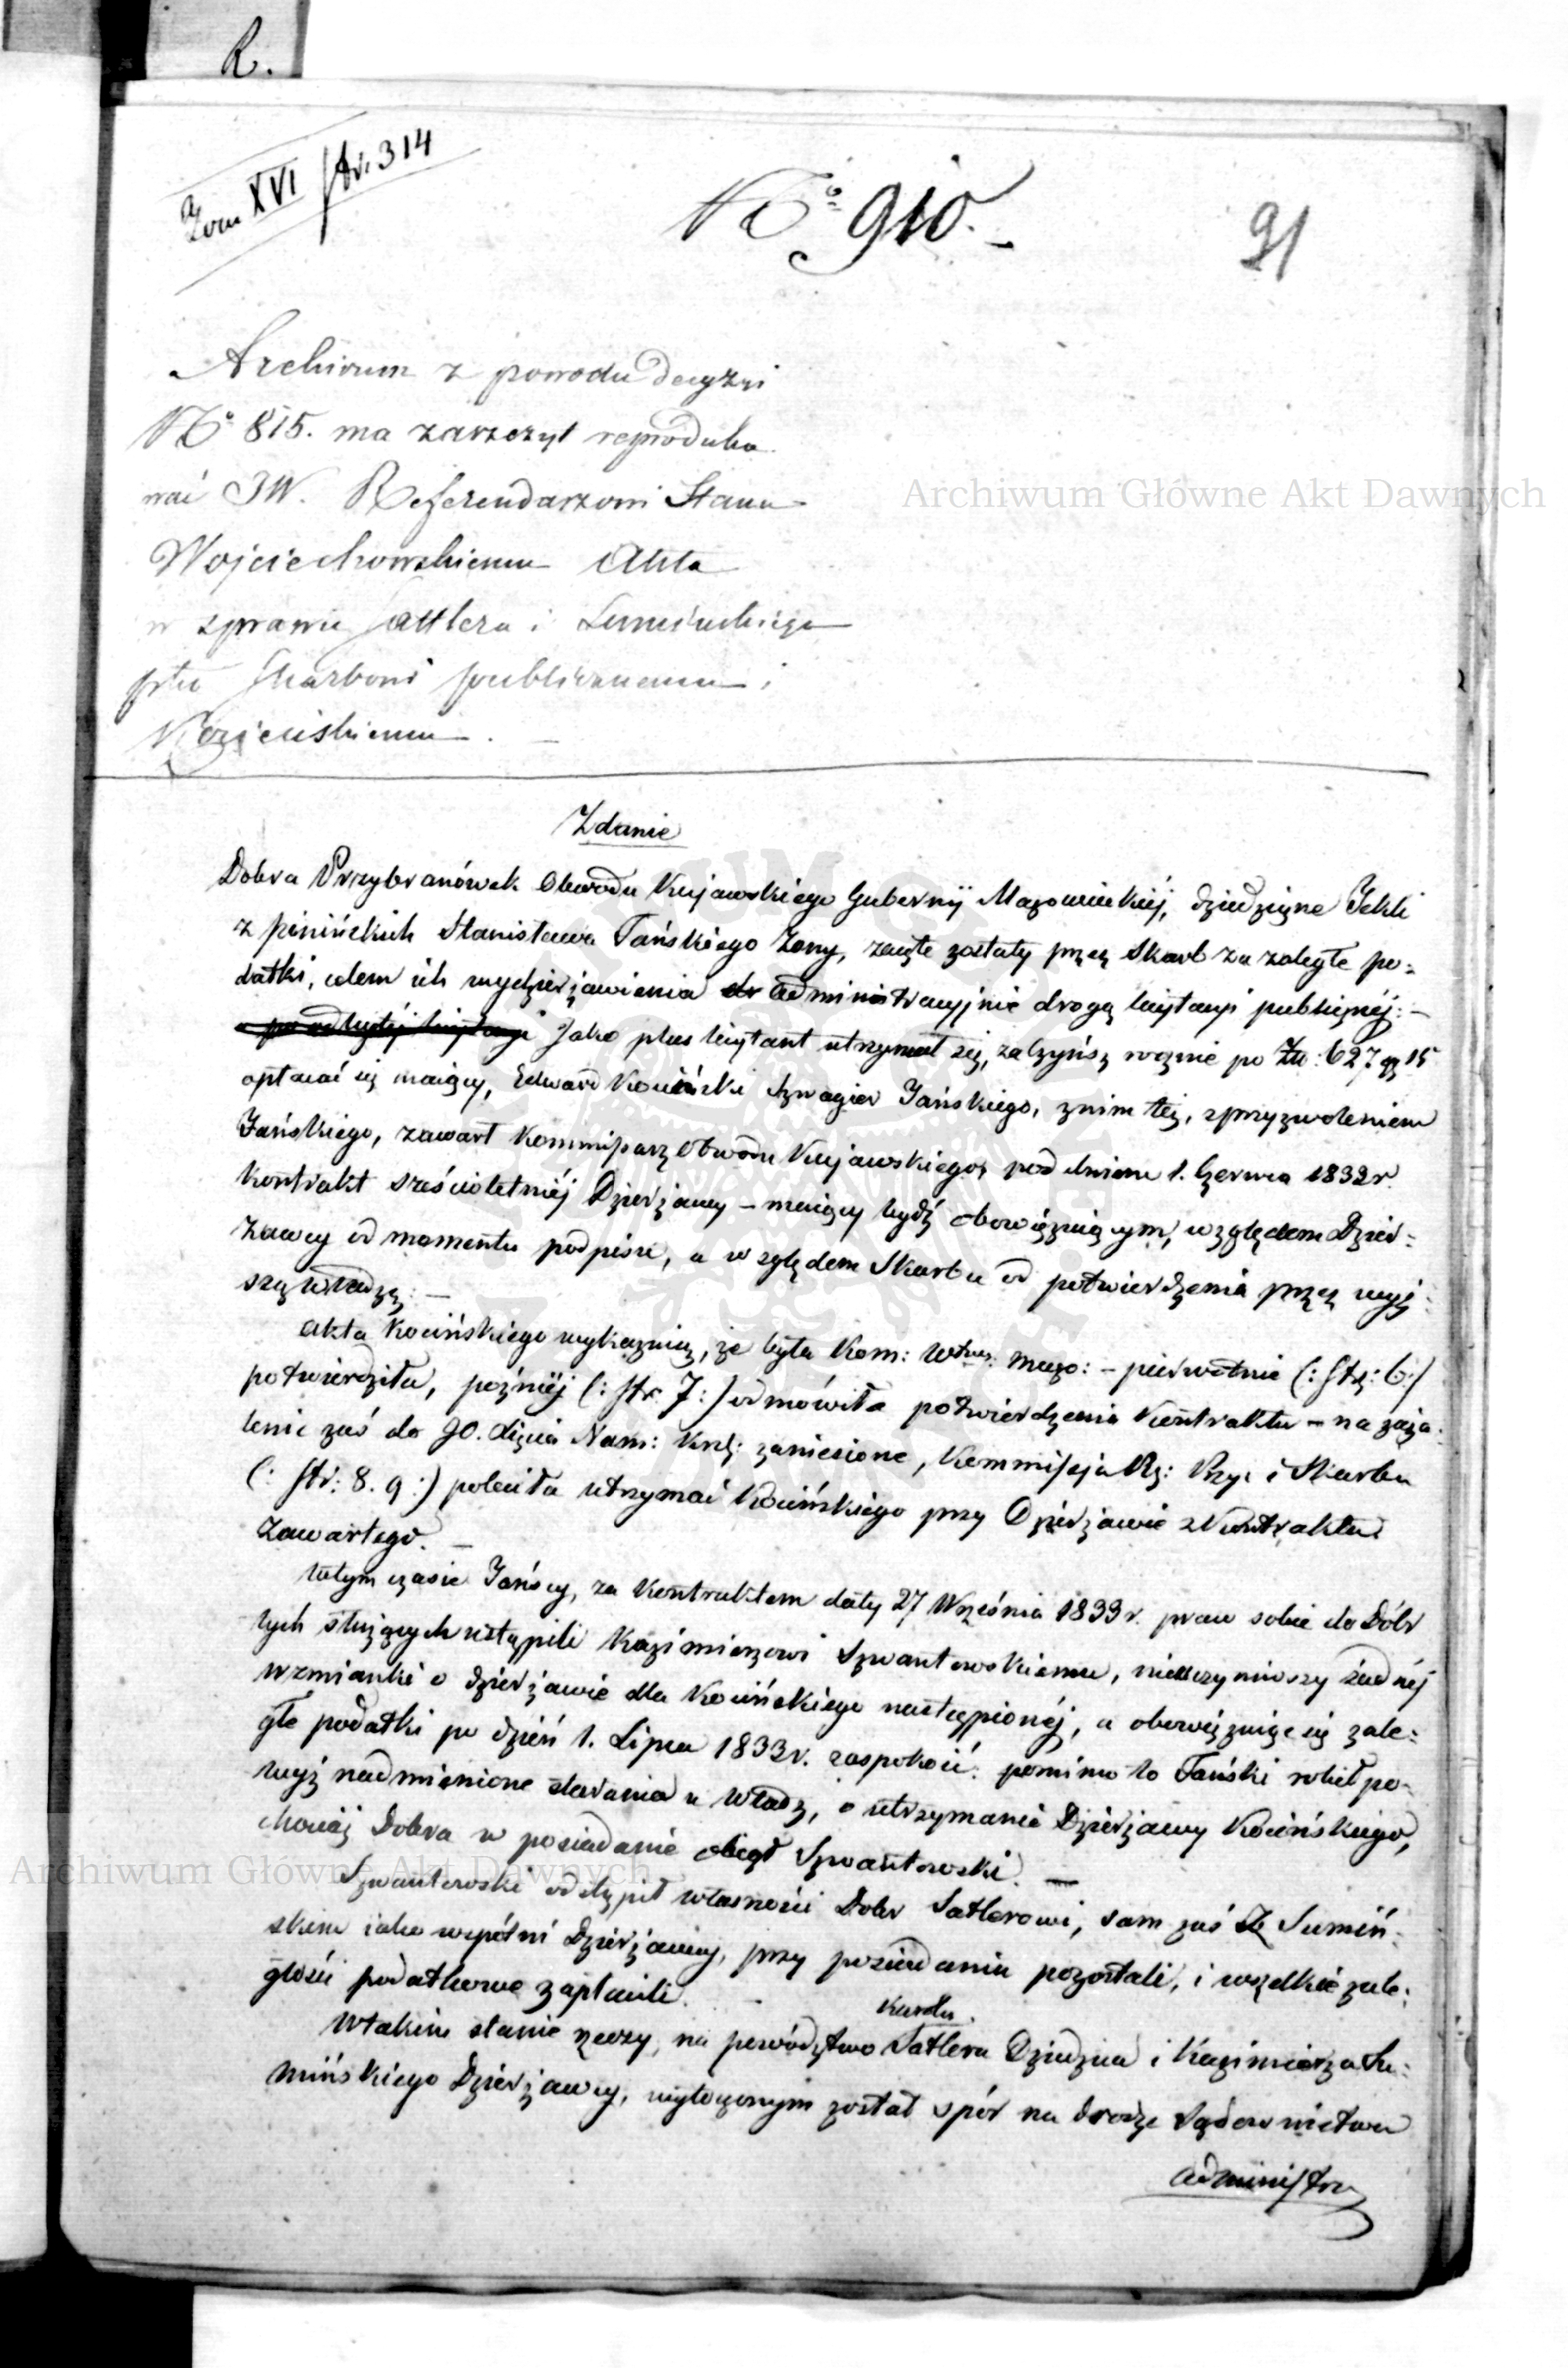 R.
Tom XVI Str. 314
No 910.
91
Archiwum z powodu decyzyi
No 815. ma zaszczyt reproduko
wać JW. Referendarzowi Stanu
Wojciechowskiemu Akta
w sprawie Sattlera i Sumińskiego
ptko Skarbowi publicznemu i
Kocińskiemu. —
Archiwum Główne Akt Dawnych
Zdanie
Dobra Przybranówek Obwodu Kujawskiego Gubernij Mazowieckiej, dziedziczne Tekli
z Stanisława Tańskiego Żony, zajęte zostały przez Skarb za zaległe po=
datki, celem ich wydzierżawienia administracyjnie drogą licytacyi publicznej: —
Jako plus licytant utrzymał się, za czynsz rocznie po Złł: 627 gr 15
opłacać się maiący, Edward Kociński Szwagier Tańskiego, z nim też, z przyzwoleniem
Tańskiego, zawarł Kommissarz Obwodu Kujawskiego, pod dniem 1. Czerwca 1832 r.
Kontrakt sześcioletniéj Dzierżawy — maiący bydź obowięzuiącym, względem Dzier=
żawcy od momentu podpisu, a względem Skarbu od potwierdzenia przez wyż=
szą władzę: —
Akta Kocińskiego wykazuią, że była Kom: Wtwa: Mazo: — pierwotnie (: Str: 6:)
potwierdziła, poźniéj (: Str 7:) odmówiła potwierdzenia Kontraktu — na zaża=
lenie zaś do JO. Xięcia Nam: Król: zaniesione, Kommissja Rz: Przy: i Skarbu
(: Str: 8. 9:) poleciła utrzymać Kocińskiego przy Dzierżawie z Kontraktu
zawartego. —
W tym czasie Tańscy, za Kontraktem daty 27 Września 1833 r. praw sobie do Dóbr
tych służących ustąpili Kazimierzowi Szwantowskiemu, nieuczyniwszy żadnéj
wzmianki o dzierżawie dla Kocińskiego nastąpionéj, a obowięzuiąc się zale=
głe podatki po dzień 1. Lipca 1833 r. zaspokoić: pomimo to Tański robił po=
wyż nadmienione starania u Władz, o utrzymanie Dzierżawy Kocińskiego,
chociaż Dobra w posiadanie objął Szwantowski. —
Archiwum Główne Akt Dawnych
Szwantowski odstąpił własności Dobr Satlerowi, sam zaś z Sumiń=
skim iako wspólni Dzierżawcy, przy posiadaniu pozostali, i wszelkie zale=
głości podatkowe zapłacili. —
Karola
W takim stanie rzeczy, na powództwo Satlera Dziedzica i Kazimierza Su=
mińskiego Dzierżawcy, wytoczonym został spór na drodze Sądownictwa
Administra